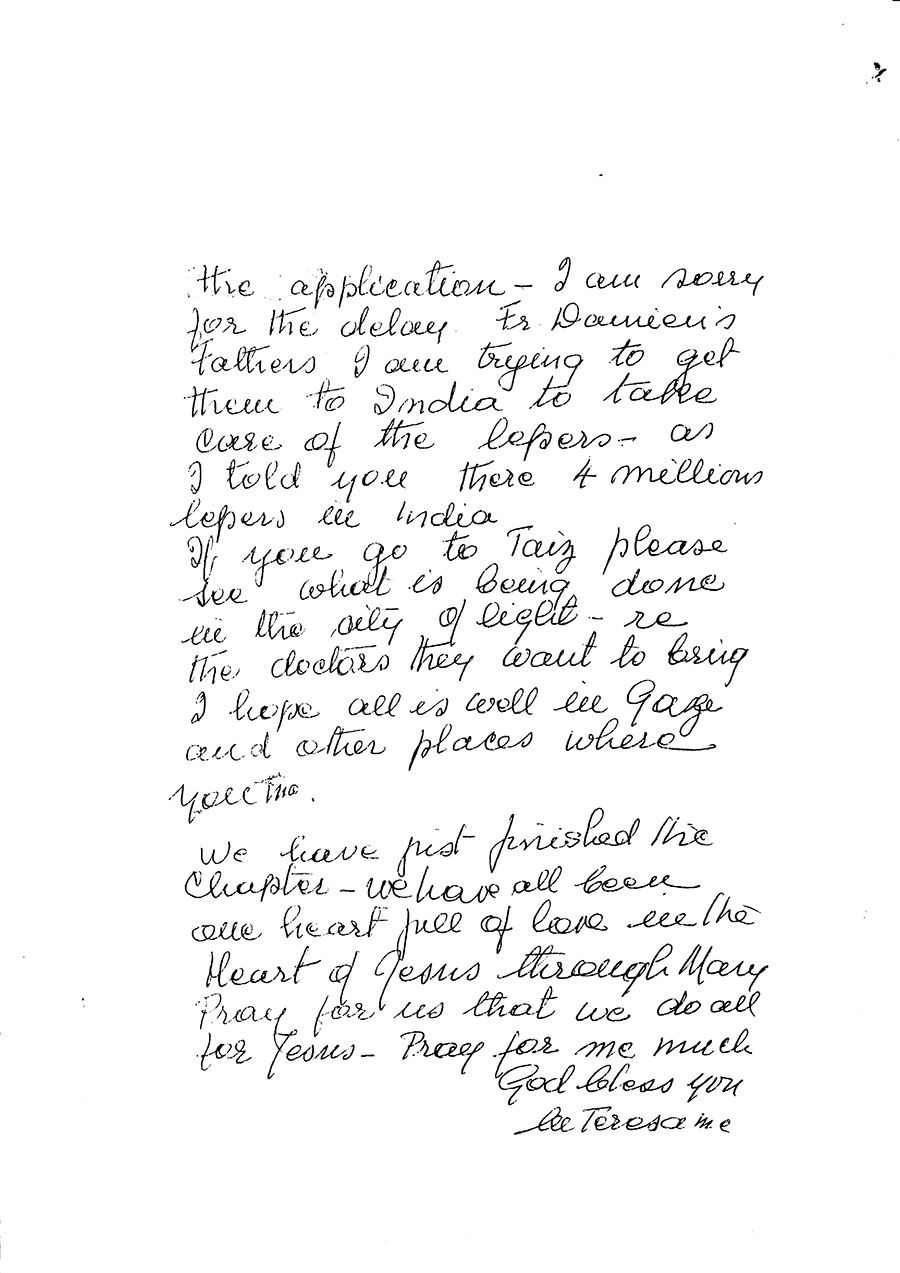 the application – I am sorry
for the delay. Fr Damien's
Fathers I am trying to get
them to India to take
care of the lepers – as
I told you there 4 millions
lepers in India
If you go to Taiz please
see what is being done
in the city of light – re
the doctors they want to bring
I hope all is well in Gaze
and other places where
you
We have just finished the
Chapter – we have all been
one heart full of love in the
Heart of Jesus through Mary
Pray for us that we do all
for Jesus – Pray for me much
God bless you
M Teresa mc